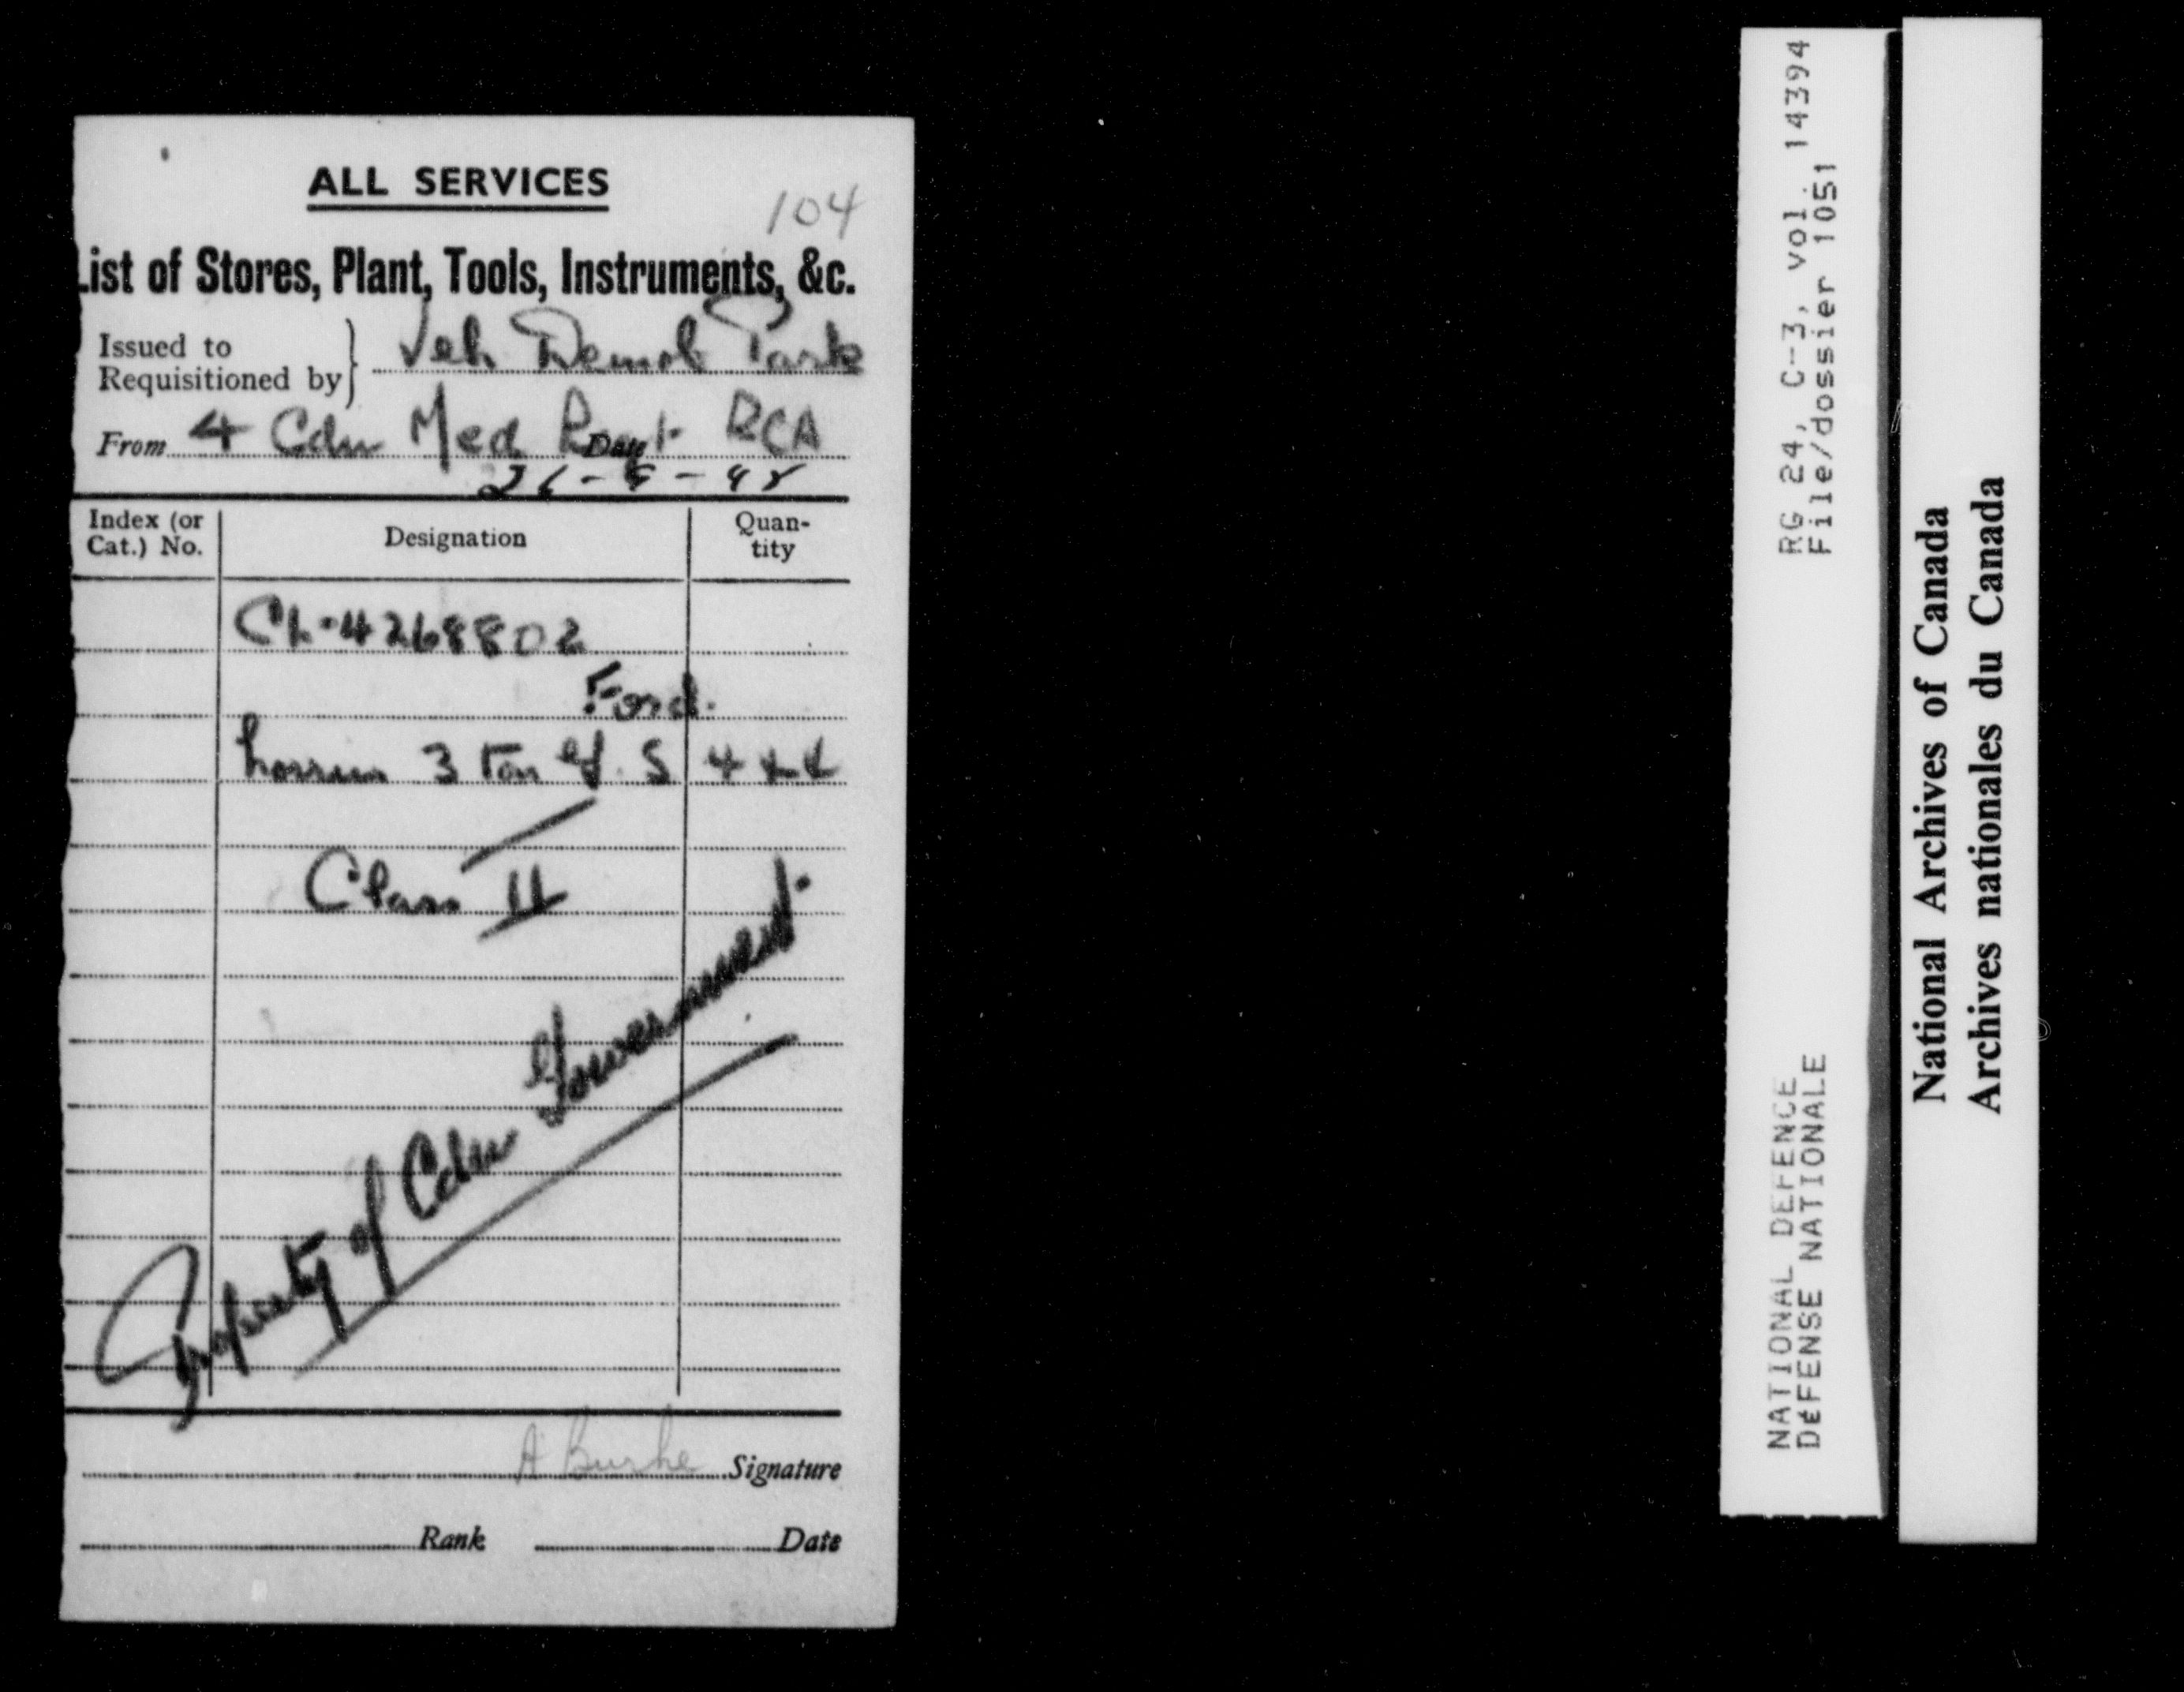 ALL SERVICES
104
List of Stores, Plant, Tools, Instruments, &c.
Issued to
Requisitioned by } Veh Demob Park
From 4 Cdn Med Regt RCA
Date
Index (or Cat.) No.
Designation
Quantity
4268802
Ford.
3 Ton G.S 4x4
Class II
Property of Cdn Government.
A Burke Signature
Rank
Date
RG 24, C-3, vol. 14394
File/dossier 1051
NATIONAL DEFENCE
DÉFENSE NATIONALE
National Archives of Canada
Archives nationales du Canada